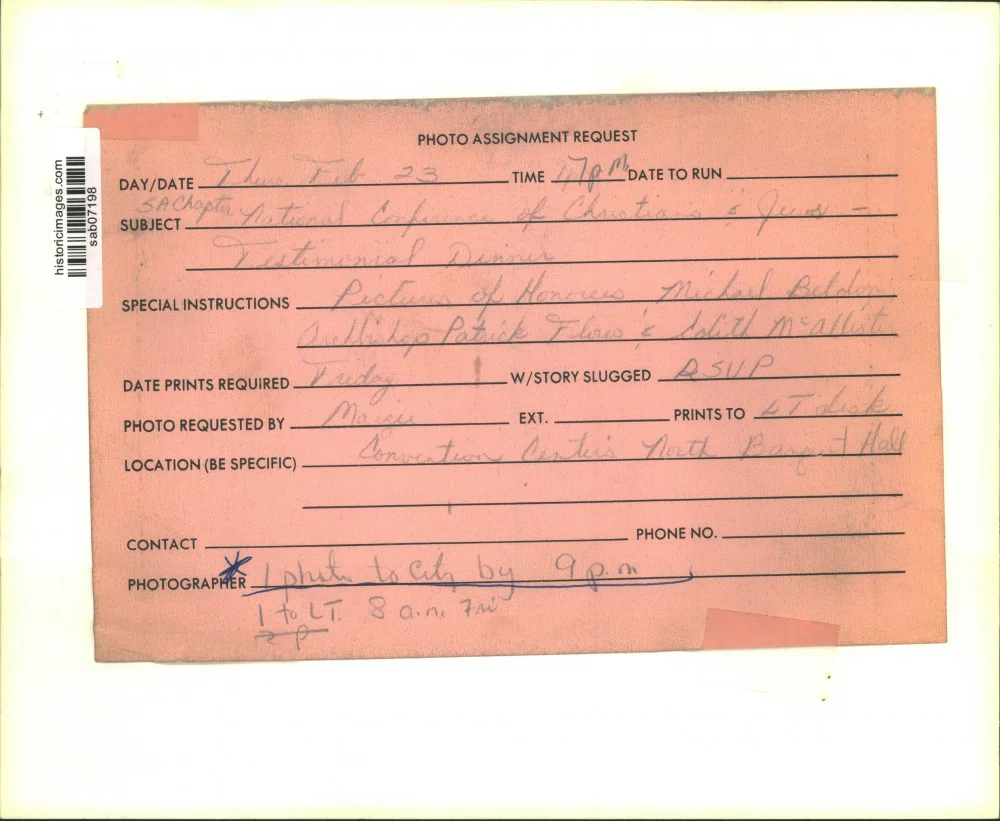 PHOTO ASSIGNMENT REQUEST
DAY/DATE Thurs Feb 23 TIME 7 p.m. DATE TO RUN
SA Chapter
SUBJECT National Conference of Christians & Jews -
Testimonial Dinner
SPECIAL INSTRUCTIONS Pictures of Honorees Michael Beldon
Archbishop Patrick Flores & Edith McAllister
DATE PRINTS REQUIRED Friday W/STORY SLUGGED RSVP
PHOTO REQUESTED BY EXT. PRINTS TO LT desk
LOCATION (BE SPECIFIC) Convention Center's North Banquet Hall
CONTACT PHONE NO.
PHOTOGRAPHER * 1 photo to City by 9 p.m
1 to LT. 8 a.m. Fri
historicimages.com
sab07198